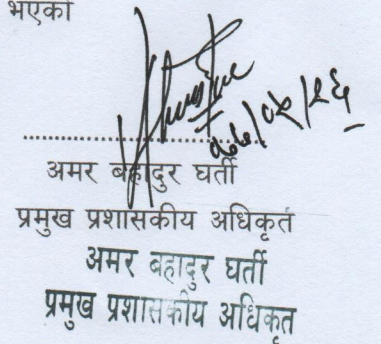 भएको
..............................
अमर बहादुर घर्ती
प्रमुख प्रशासकीय अधिकृत
अमर बहादुर घर्ती
प्रमुख प्रशासकीय अधिकृत